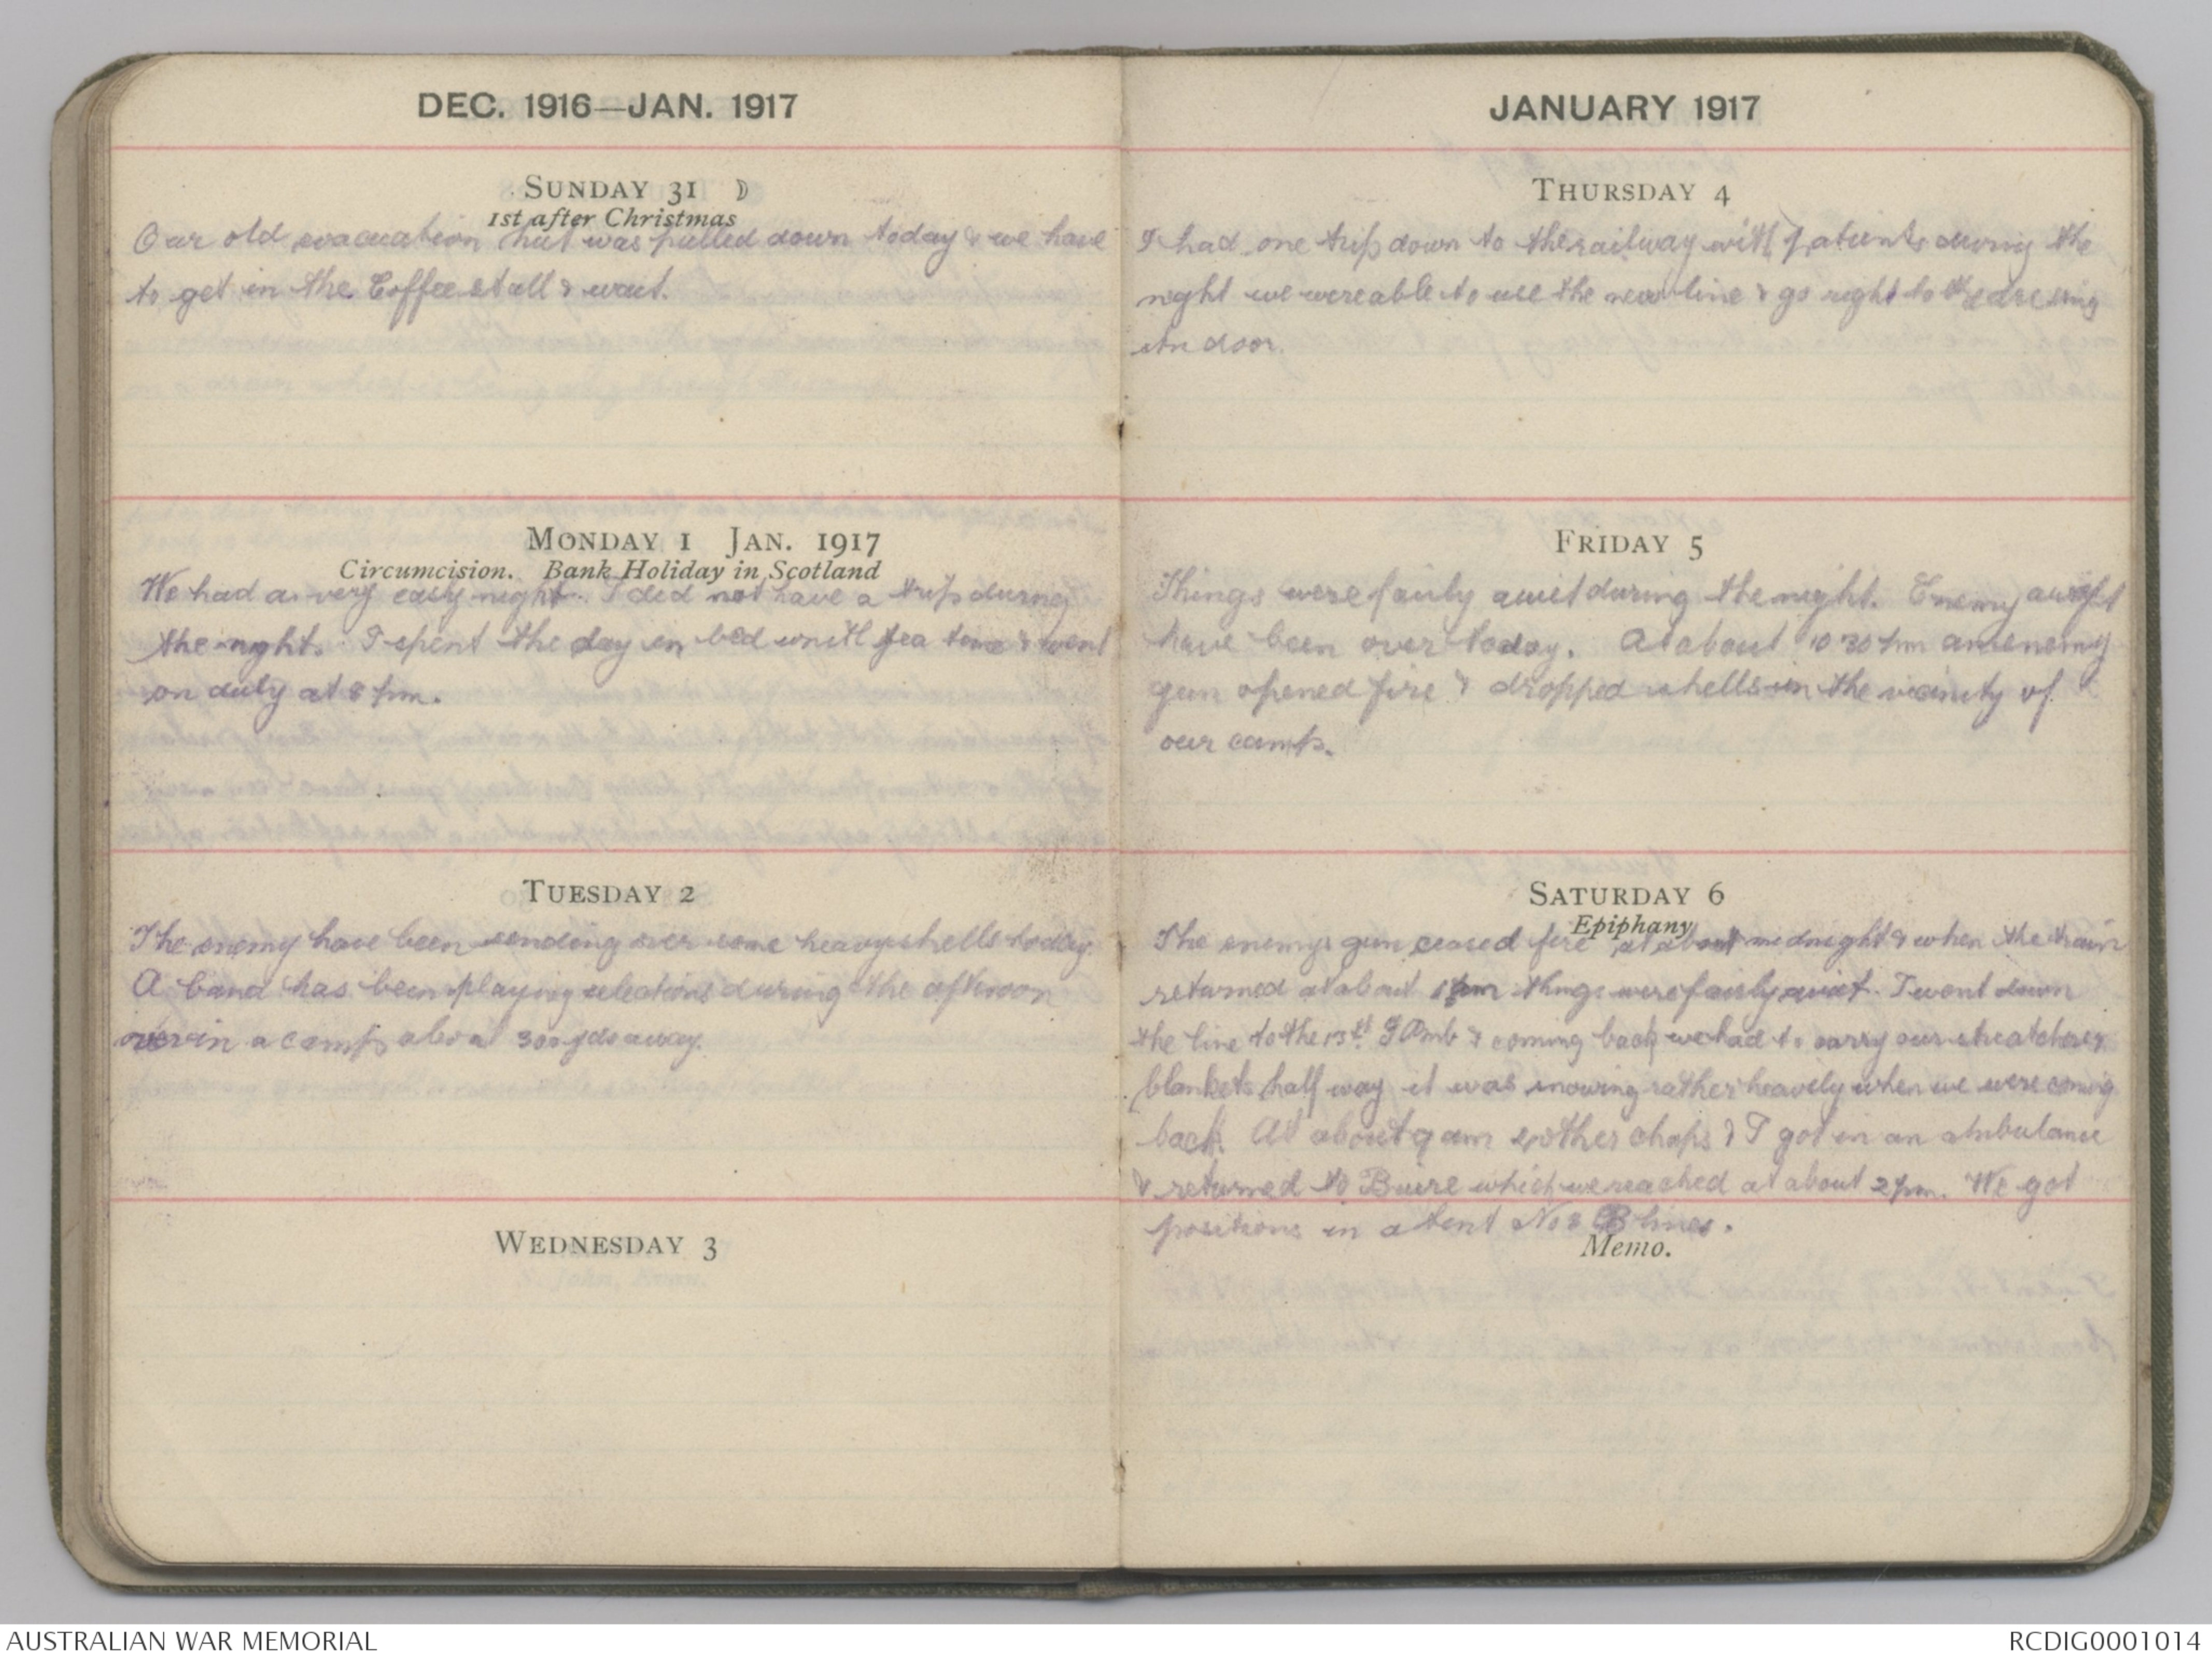 DEC. 1916—JAN. 1917
SUNDAY 31
1st after Christmas
Our old evacuation hut was pulled down today & we have
to get in the Coffee stall & wait.
MONDAY 1 JAN. 1917
Circumcision. Bank Holiday in Scotland
We had a very easy night. I did not have a trip during
the night. I spent the day in bed until tea time & went
on duty at 8 pm.
TUESDAY 2
The enemy have been sending over some heavy shells today.
A band has been playing selections during the afternoon
over in a camp about 300 yds away.
WEDNESDAY 3
JANUARY 1917
THURSDAY 4
I had one trip down to the railway with patients during the
night we were able to use the new line & go right to the dressing
stn door.
FRIDAY 5
Things were fairly quiet during the night. Enemy
have been over today. At about 10 30 pm an enemy
gun opened fire & dropped shells in the vicinity of
our camp.
SATURDAY 6
Epiphany
The enemys gun ceased fire at about midnight & when the train
returned at about things were fairly quiet. I went down
the line to the 13th F Amb & coming back we had to carry our stretchers
blankets half way it was snowing rather heavely when we were coming
back. At about 9 am other chaps & I got in an ambulance
& returned to Buire which we reached at about 2 pm. We got
positions in a tent No 8 B lines.
Memo.
AUSTRALIAN WAR MEMORIAL
RCDIG0001014